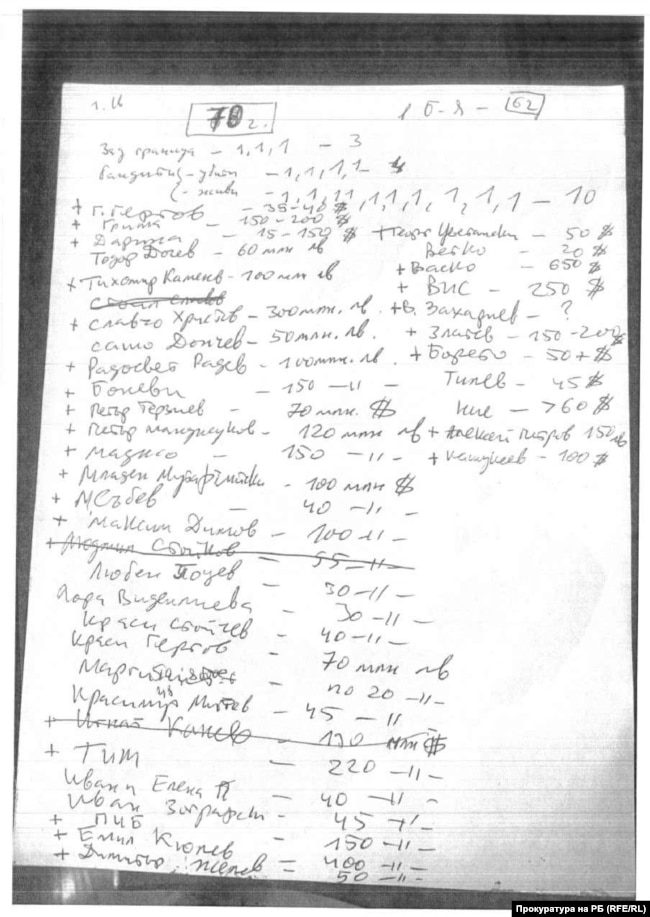 1 Б-Я - 62
78 г.
Зад граница - 1,1,1 - 3
бандити - убити - 1,1,1,1 - 4
- живи - 1,1,11,1,1,1,1,1,1 - 10
+ Г. Гергов - 35-40 $
+ Гриша - 150-200 $
+ Дарина - 15-150 $
Тодор Дочев - 60 млн лв
+ Тихомир Каменов - 100 млн лв
+ Славчо Христов - 300 млн. лв.
Сашо Дончев - 50 млн. лв.
+ Радосвет Радев - 100 млн. лв
+ Боневи - 150 -〃-
+ Петър Терзиев - 70 млн. $
+ Петър Манджуков - 120 млн лв
+ Маджо - 150 -〃-
+ Младен Мутафчийски - 100 млн $
+ М Събев - 40 -〃-
+ Максим Димов - 100 -〃-
+ Людмил Стойков - 55 -〃-
Любен - 30 -〃-
Лора Виденлиева - 30 -〃-
Краси Стойчев - 40 -〃-
Краси Гергов - 70 млн лв
- по 20 -〃-
Красимир - 45 -〃-
+ Игнат Канев - 170 млн $
+ ТИМ - 220 -〃-
Иван и Елена П - 40 -〃-
Иван Зографски - 45 -〃-
+ ПИБ - 150 -〃-
+ Емил Кюлев - 400 -〃-
+ Димитър Желев = 50 -〃-
+ - 50 $
Ветко - 20 $
+ Васко - 650 $
+ ВИС - 250 $
+ В. Захариев - ?
+ Златев - 150-200 $
+ - 50 + $
Типев - 45 $
Ние - >60 $
+ Алексей Петров 150 лв
+ - 100 $
Прокуратура на РБ (RFE/RL)